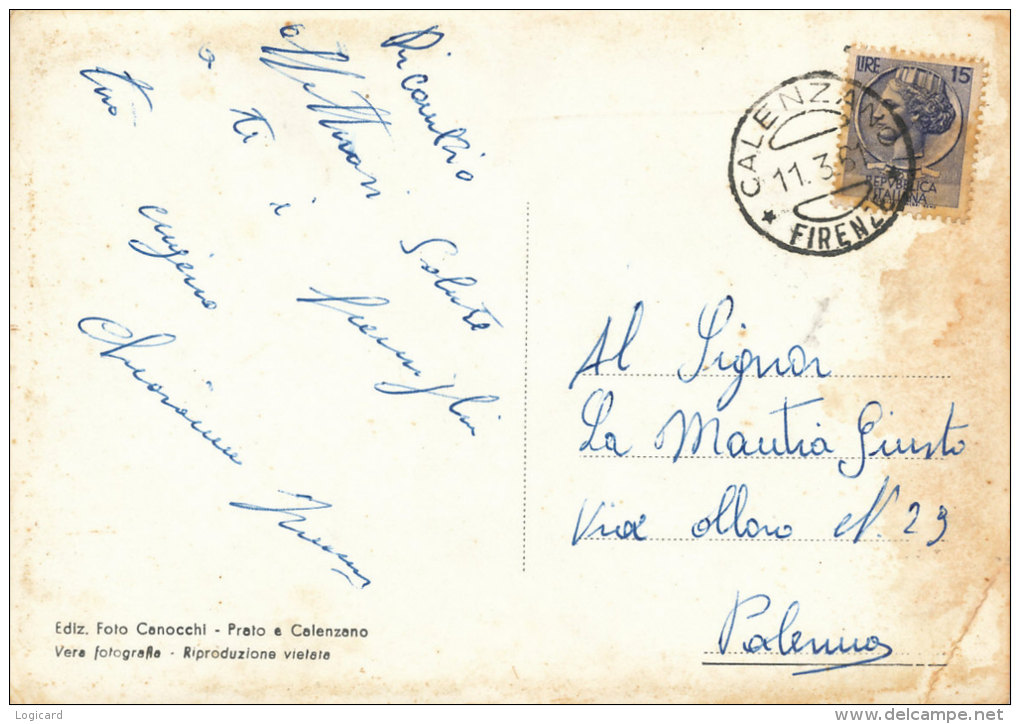 Ricambio Salute
affettuosi
a te i famiglia
tuo cugino
LIRE 15
REPUBBLICA
ITALIANA
CALENZANO
11.3.61
FIRENZE
Al Signor
La Mantia Giusto
Via N. 29
Palermo
Ediz. Foto Canocchi - Prato e Calenzano
Vera fotografia - Riproduzione vietata
Logicard
www.delcampe.net